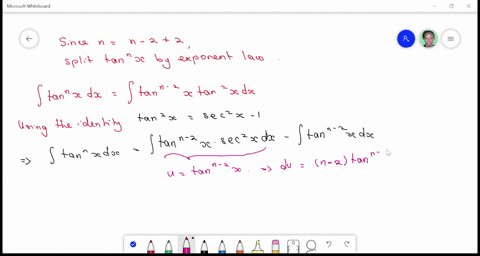 Microsoft Whiteboard
Since n = n - 2 + 2,
split tanⁿx by exponent law.
∫ tanⁿ x dx = ∫ tanⁿ⁻² x tan² x dx
Using the identity tan² x = sec² x - 1
⇒ ∫ tanⁿ x dx = ∫ tanⁿ⁻² x · sec² x dx - ∫ tanⁿ⁻² x dx
u = tanⁿ⁻² x. ⇒ du = (n-2) tanⁿ⁻